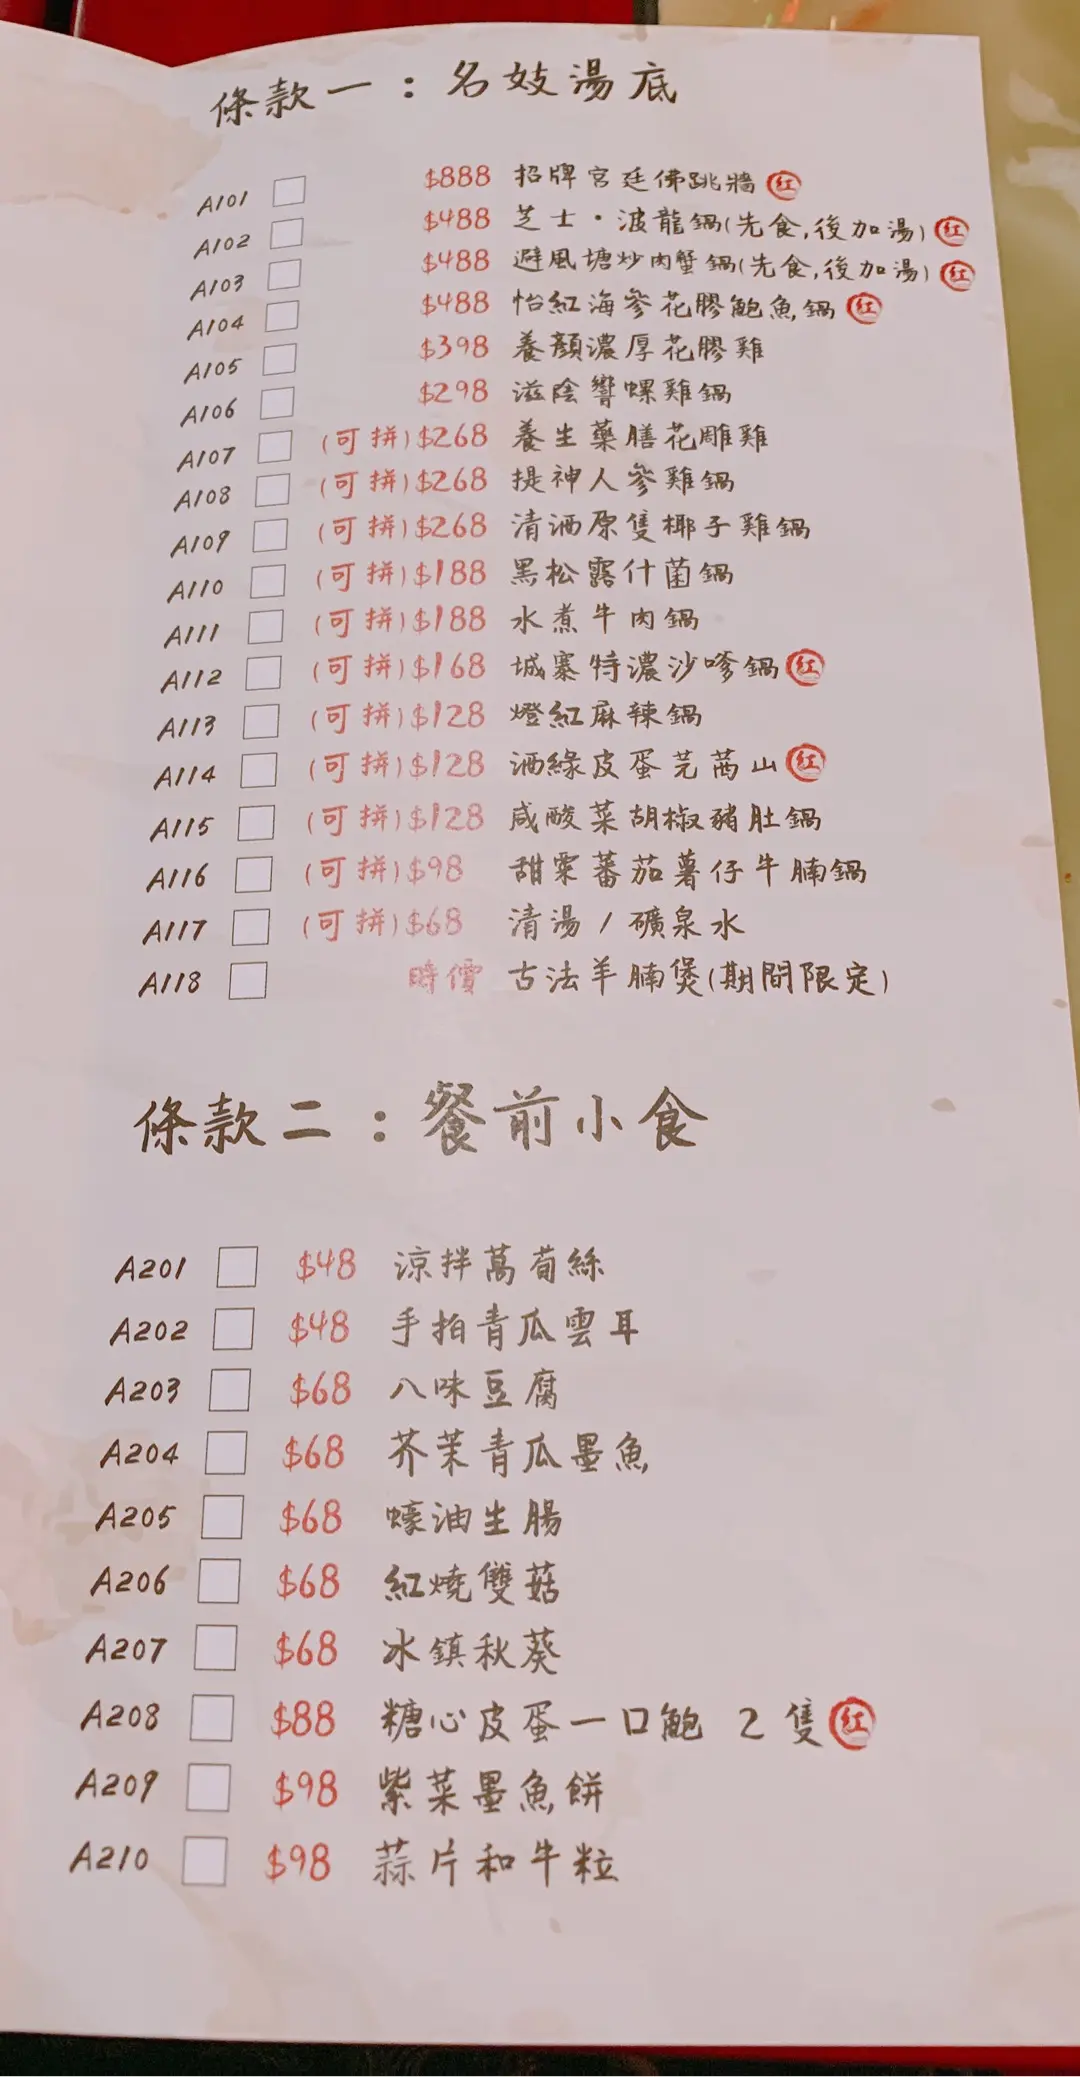 條款一：名妓湯底
A101 $888 招牌宮廷佛跳牆 紅
A102 $488 芝士·波龍鍋(先食,後加湯) 紅
A103 $488 避風塘炒肉蟹鍋(先食,後加湯) 紅
A104 $488 怡紅海參花膠鮑魚鍋 紅
A105 $398 養顏濃厚花膠雞
A106 $298 滋陰響螺雞鍋
A107 (可拼)$268 養生藥膳花雕雞
A108 (可拼)$268 提神人參雞鍋
A109 (可拼)$268 清洒原隻椰子雞鍋
A110 (可拼)$188 黑松露什菌鍋
A111 (可拼)$188 水煮牛肉鍋
A112 (可拼)$168 城寨特濃沙嗲鍋 紅
A113 (可拼)$128 燈紅麻辣鍋
A114 (可拼)$128 洒綠皮蛋芫茜山 紅
A115 (可拼)$128 咸酸菜胡椒豬肚鍋
A116 (可拼)$98 甜粟蕃茄薯仔牛腩鍋
A117 (可拼)$68 清湯/礦泉水
A118 時價 古法羊腩煲(期間限定)
條款二：餐前小食
A201 $48 涼拌萵荀絲
A202 $48 手拍青瓜雲耳
A203 $68 八味豆腐
A204 $68 芥茉青瓜墨魚
A205 $68 蠔油生腸
A206 $68 紅燒雙菇
A207 $68 冰鎮秋葵
A208 $88 糖心皮蛋一口鮑 2隻 紅
A209 $98 紫菜墨魚餅
A210 $98 蒜片和牛粒